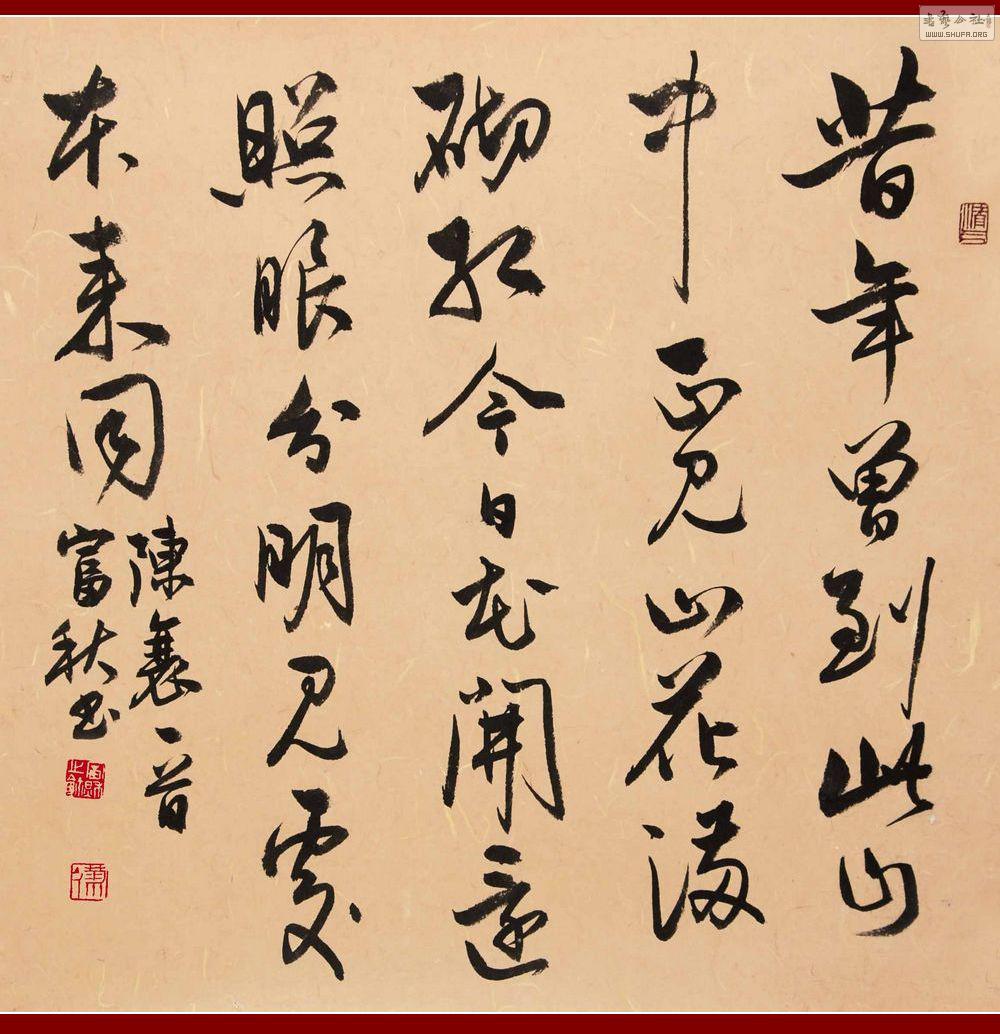 昔年曾到此山
中正見山花滿
砌紅今日花開還
照眼分明見處
本來同
陳襄一首
富秋書
書藝公社
WWW.SHUFA.ORG